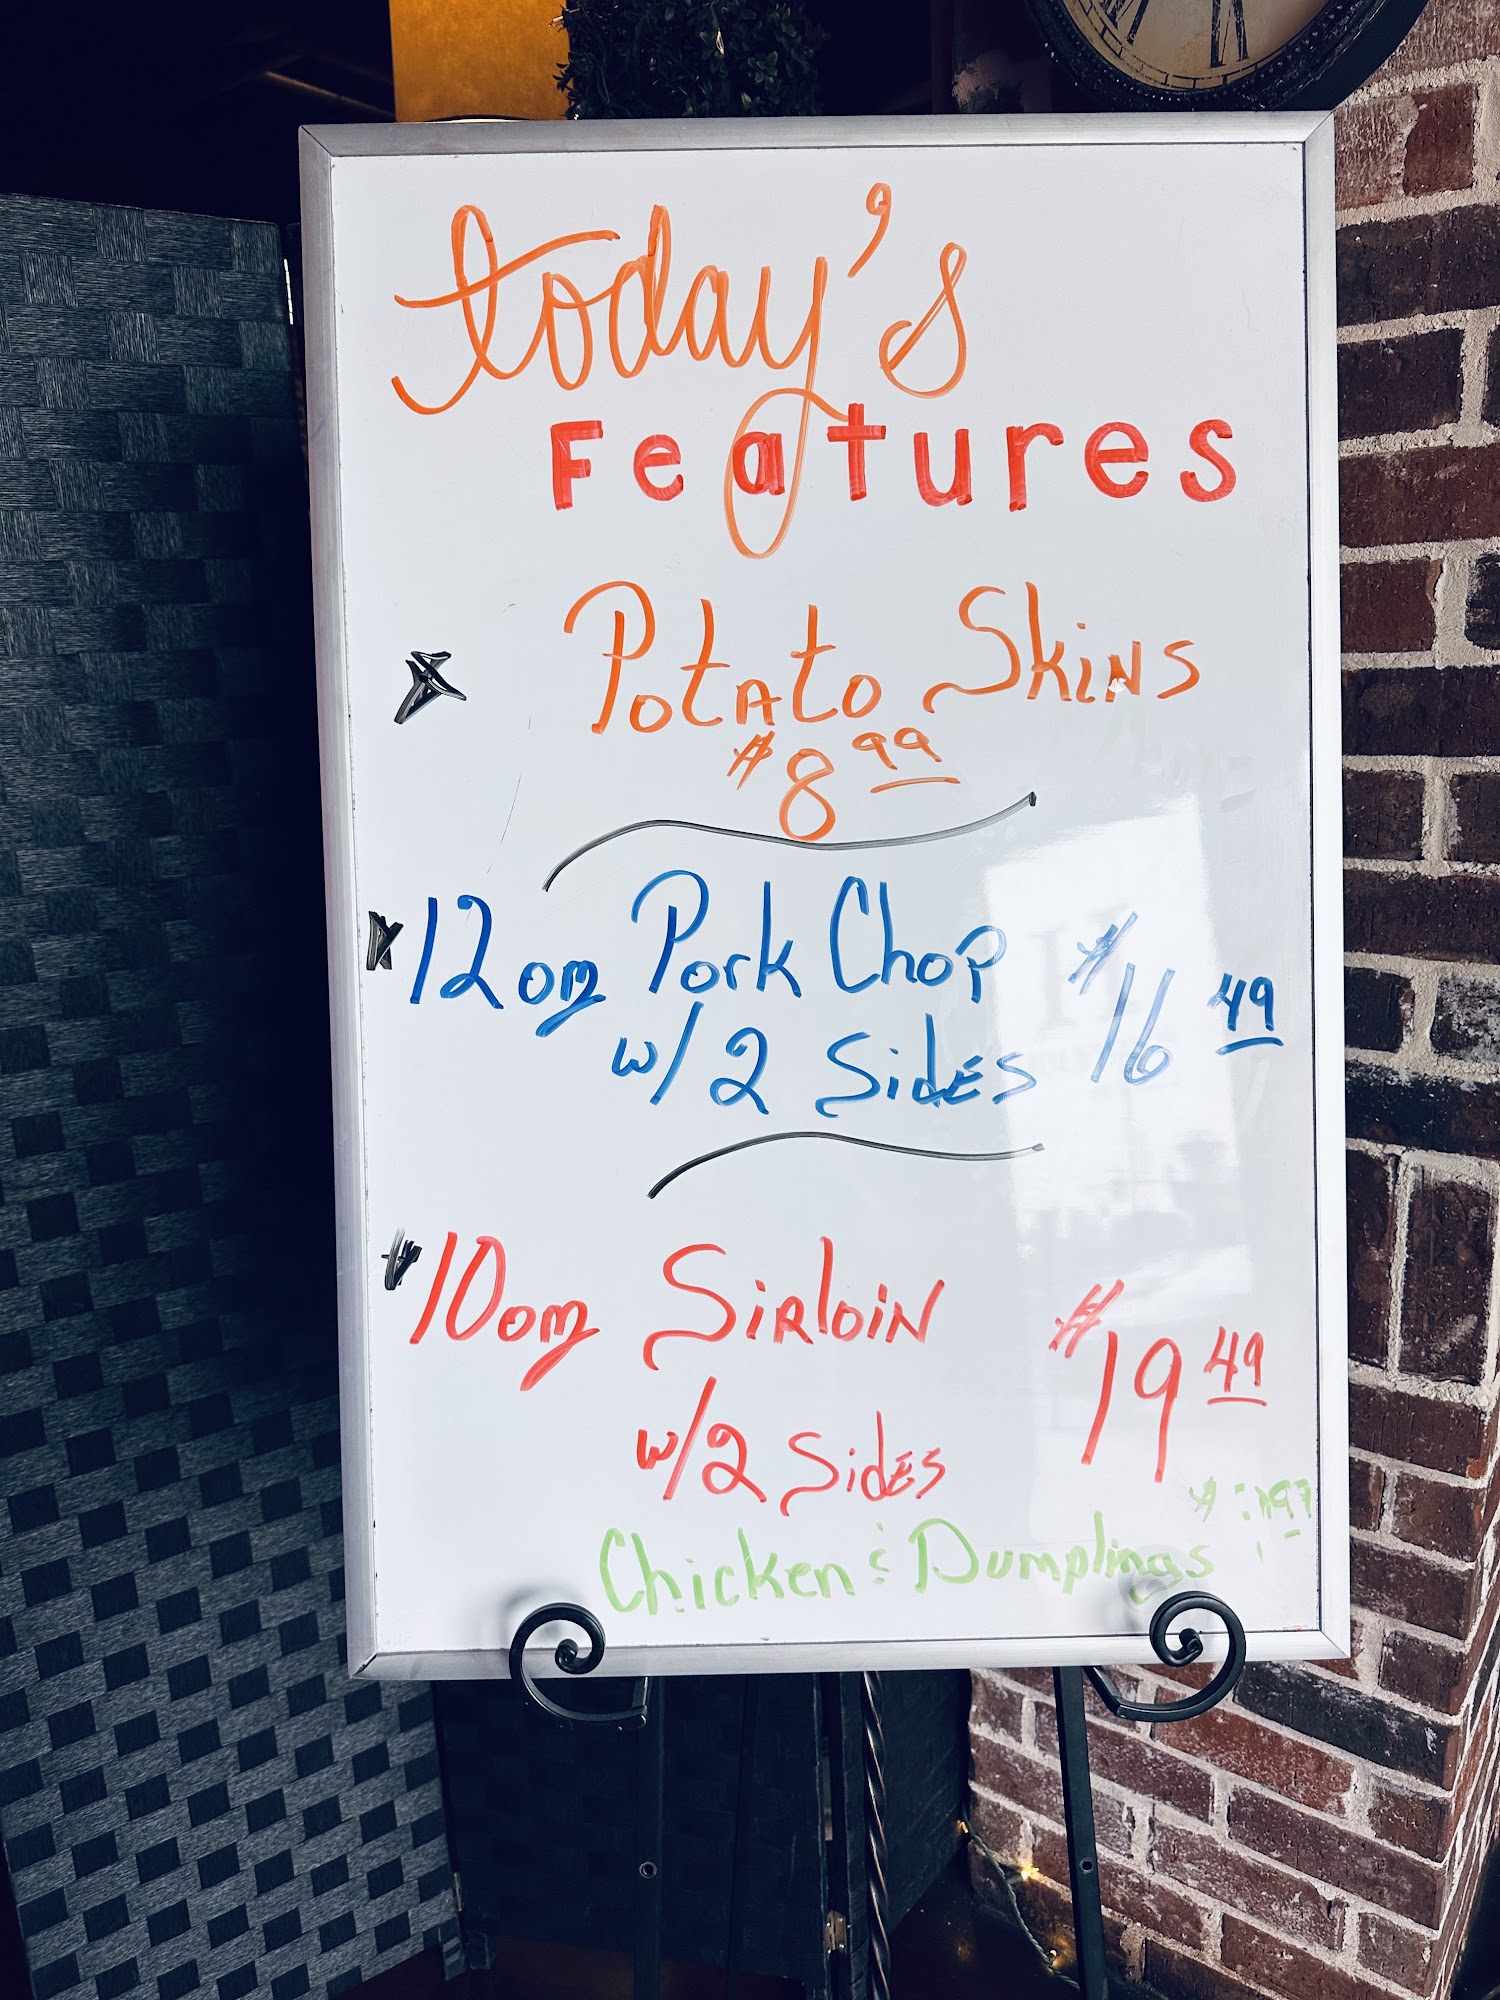 today's
Features
Potato Skins
$8.99
12oz Pork Chop $16.49
w/2 Sides
10oz Sirloin $19.49
w/2 Sides
Chicken & Dumplings